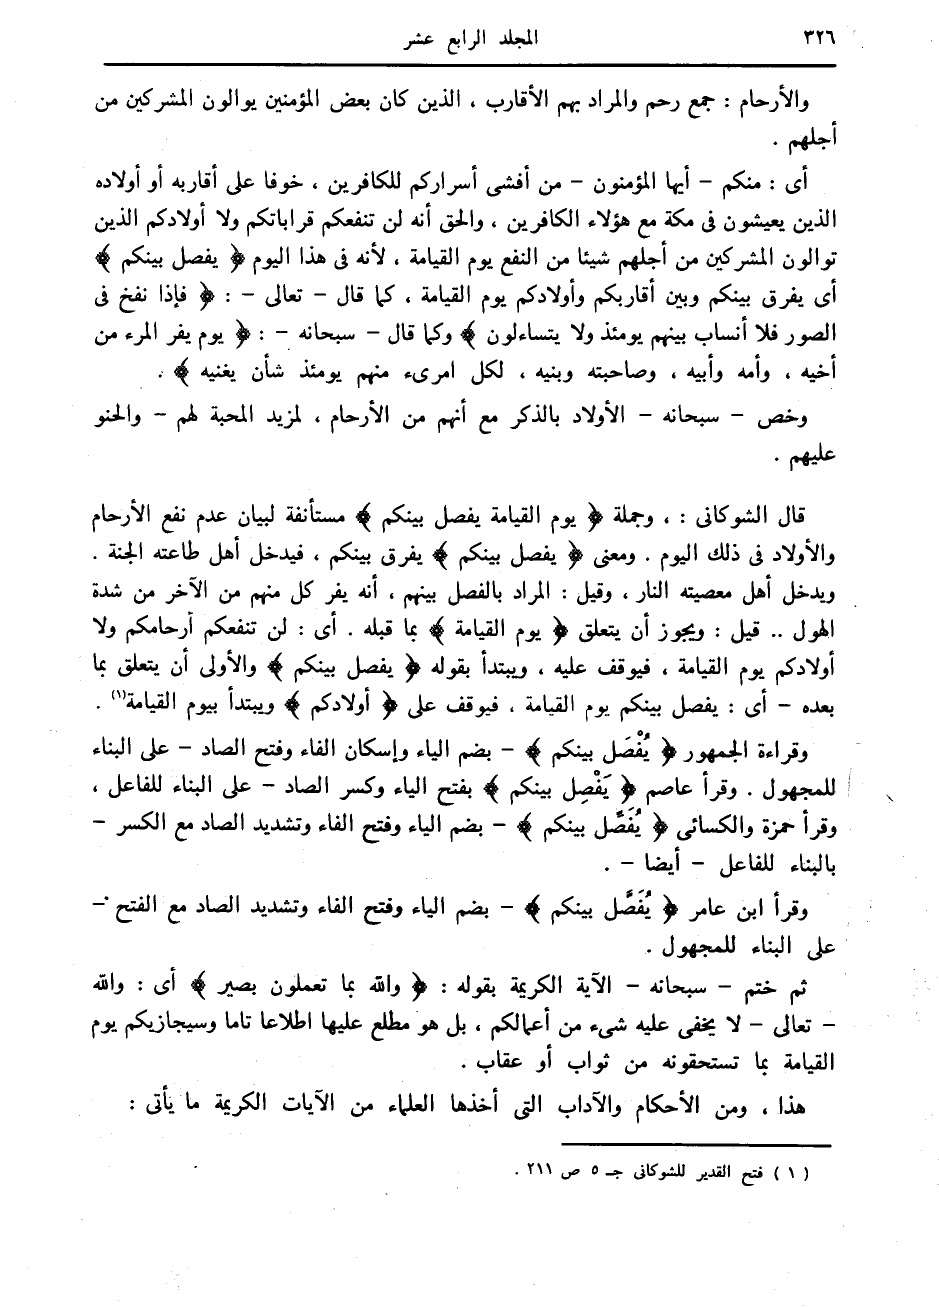 ٣٢٦
المجلد الرابع عشر
والأرحام : جمع رحم والمراد بهم الأقارب ، الذين كان بعض المؤمنين يوالون المشركين من
أجلهم .
أى : منكم – أيها المؤمنون – من أفشى أسراركم للكافرين ، خوفا على أقاربه أو أولاده
الذين يعيشون فى مكة مع هؤلاء الكافرين ، والحق أنه لن تنفعكم قراباتكم ولا أولادكم الذين
توالون المشركين من أجلهم شيئا من النفع يوم القيامة ، لأنه فى هذا اليوم ﴿ يفصل بينكم ﴾
أى يفرق بينكم وبين أقاربكم وأولادكم يوم القيامة ، كما قال – تعالى – : ﴿ فإذا نفخ فى
الصور فلا أنساب بينهم يومئذ ولا يتساءلون ﴾ وكما قال – سبحانه – : ﴿ يوم يفر المرء من
أخيه ، وأمه وأبيه ، وصاحبته وبنيه ، لكل امرىء منهم يومئذ شأن يغنيه ﴾ .
وخص – سبحانه – الأولاد بالذكر مع أنهم من الأرحام ، لمزيد المحبة لهم – والحنو
عليهم .
قال الشوكانى : ، وجملة ﴿ يوم القيامة يفصل بينكم ﴾ مستأنفة لبيان عدم نفع الأرحام
والأولاد فى ذلك اليوم . ومعنى ﴿ يفصل بينكم ﴾ يفرق بينكم ، فيدخل أهل طاعته الجنة .
ويدخل أهل معصيته النار ، وقيل : المراد بالفصل بينهم ، أنه يفر كل منهم من الآخر من شدة
الهول .. قيل : ويجوز أن يتعلق ﴿ يوم القيامة ﴾ بما قبله . أى : لن تنفعكم أرحامكم ولا
أولادكم يوم القيامة ، فيوقف عليه ، ويبتدأ بقوله ﴿ يفصل بينكم ﴾ والأولى أن يتعلق بما
بعده – أى : يفصل بينكم يوم القيامة ، فيوقف على ﴿ أولادكم ﴾ ويبتدأ بيوم القيامة(١) .
وقراءة الجمهور ﴿ يُفْصَل بينكم ﴾ – بضم الياء وإسكان الفاء وفتح الصاد – على البناء
للمجهول . وقرأ عاصم ﴿ يَفْصِل بينكم ﴾ بفتح الياء وكسر الصاد – على البناء للفاعل ،
وقرأ حمزة والكسائى ﴿ يُفَصَّل بينكم ﴾ – بضم الياء وفتح الفاء وتشديد الصاد مع الكسر –
بالبناء للفاعل – أيضا – .
وقرأ ابن عامر ﴿ يُفَصَّل بينكم ﴾ – بضم الياء وفتح الفاء وتشديد الصاد مع الفتح –
على البناء للمجهول .
ثم ختم – سبحانه – الآية الكريمة بقوله : ﴿ والله بما تعملون بصير ﴾ أى : والله
– تعالى – لا يخفى عليه شىء من أعمالكم ، بل هو مطلع عليها اطلاعا تاما وسيجازيكم يوم
القيامة بما تستحقونه من ثواب أو عقاب .
هذا ، ومن الأحكام والآداب التى أخذها العلماء من الآيات الكريمة ما يأتى :
( ١ ) فتح القدير للشوكانى جـ ٥ ص ٢١١ .